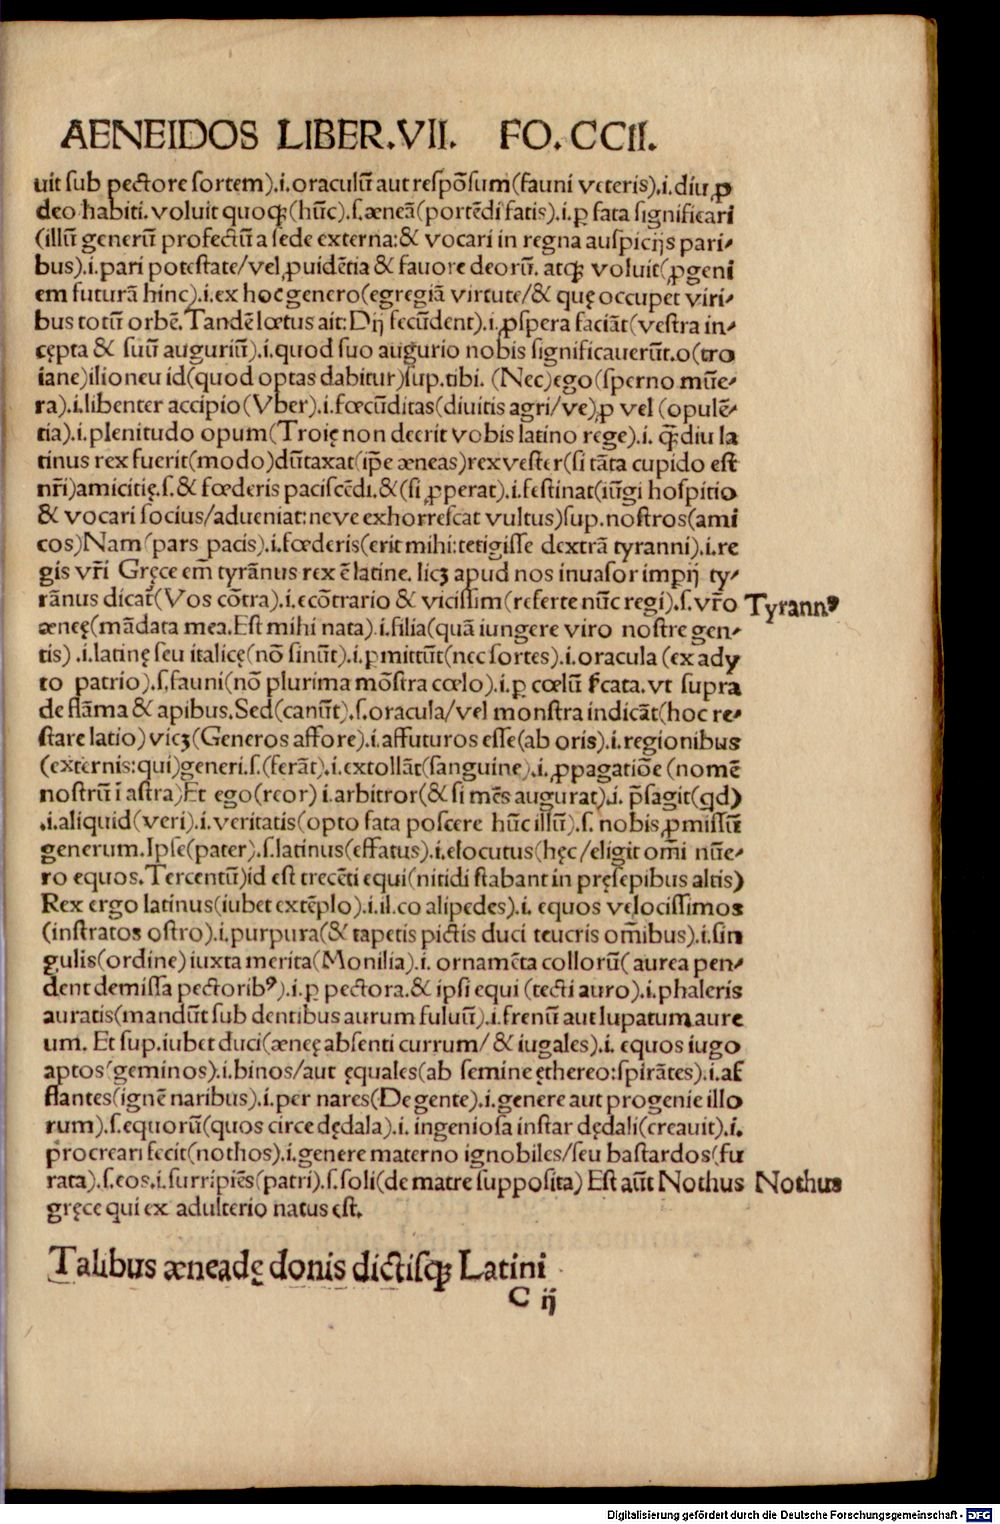 AENEIDOS LIBER.VII. FO.CCII.
uit ſub pectore ſortem).i.oraculũ aut reſpõſum(fauni veteris).i.diu ꝓ
deo habiti.voluit quoqꝫ(hũc).ſ.æneã(portẽdi fatis).i.ꝑ fata ſignificari
(illũ generũ profectũ a ſede externa:& vocari in regna auſpicijs pari⸗
bus).i.pari poteſtate/vel ꝓuidẽtia & fauore deorũ. atqꝫ voluit(ꝓgeni
em futurã hinc).i.ex hoc genero(egregiã virtute/& quę occupet viri⸗
bus totũ orbẽ.Tandẽ lœtus ait:Dij ſecũdent).i.ꝓſpera faciãt(veſtra in⸗
cępta & ſuũ auguriũ).i.quod ſuo augurio nobis ſignificauerũt.o(tro
iane)ilioneu id(quod optas dabitur)ſup.tibi. (Nec)ego(ſperno mũe⸗
ra).i.libenter accipio(Vber).i.fœcũditas(diuitis agri/ve)ꝓ vel (opulẽ⸗
tia).i.plenitudo opum(Troię non deerit vobis latino rege).i. q̃diu la
tinus rex fuerit(modo)dũtaxat(ip̃e æneas)rex veſter(ſi tãta cupido eſt
nr̃i)amicitię.ſ.& fœderis paciſcẽdi.&(ſi ꝓperat).i.feſtinat(iũgi hoſpitio
& vocari ſocius/adueniat:neve exhorreſcat vultus)ſup.noſtros(ami
cos)Nam(pars pacis).i.fœderis(erit mihi:tetigiſſe dextrã tyranni).i.re
gis vr̃i Gręce em̃ tyrãnus rex ẽ latine. licꝫ apud nos inuaſor imprij ty⸗
rãnus dicat̃(Vos cõtra).i.ecõtrario & viciſſim(referte nũc regi).ſ.vr̃o Tyrannꝰ
æneę(mãdata mea.Eſt mihi nata).i.filia(quã iungere viro noſtre gen⸗
tis) .i.latinę ſeu italicę(nõ ſinũt).i.ꝑmittũt(nec ſortes).i.oracula (ex ady
to patrio).ſ.fauni(nõ plurima mõſtra cœlo).i.ꝑ cœlũ ſcata.vt ſupra
de flãma & apibus.Sed(canũt).ſ.oracula/vel monſtra indicãt(hoc re⸗
ſtare latio) vicꝫ(Generos affore).i.affuturos eſſe(ab oris).i.regionibus
(externis:qui)generi.ſ.(ferãt).i.extollãt(ſanguine).i.ꝓpagatiõe (nomẽ
noſtrũ ĩ aſtra)Et ego(reor) i.arbitror(& ſi mẽs augurat).i. p̃ſagit(qd)
.i.aliquid(veri).i.veritatis(opto fata poſcere hũc illũ).ſ. nobis ꝓmiſſũ
generum.Ipſe(pater).ſ.latinus(effatus).i.elocutus(hęc/eligit om̃i nũe⸗
ro equos.Tercentũ)id eſt trecẽti equi(nitidi ſtabant in pręſepibus altis)
Rex ergo latinus(iubet extẽplo).i.il.co alipedes).i. equos velociſſimos
(inſtratos oſtro).i.purpura(& tapetis pictis duci teucris om̃ibus).i.ſin
gulis(ordine)iuxta merita(Monilia).i. ornamẽta collorũ(aurea pen⸗
dent demiſſa pectoribꝰ).i.ꝑ pectora.& ipſi equi (tecti auro).i.phaleris
auratis(mandũt ſub dentibus aurum fuluũ).i.frenũ aut lupatum aure
um. Et ſup.iubet duci(æneę abſenti currum/ & iugales).i. equos iugo
aptos(geminos).i.binos/aut ęquales(ab ſemine ęthereo:ſpirãtes).i.af
flantes(ignẽ naribus).i.per nares(De gente).i.genere aut progenie illo
rum).ſ.equorũ(quos circe dędala).i. ingenioſa inſtar dędali(creauit).i.
procreari fecit(nothos).i.genere materno ignobiles/ſeu baſtardos(fu
rata).ſ.eos.i.ſurripiẽs(patri).ſ.ſoli(de matre ſuppoſita) Eſt aũt Nothus Nothus
gręce qui ex adulterio natus eſt.
Talibus æneadę donis dictiſqꝫ Latini
C ij
Digitalisierung gefördert durch die Deutsche Forschungsgemeinschaft - DFG